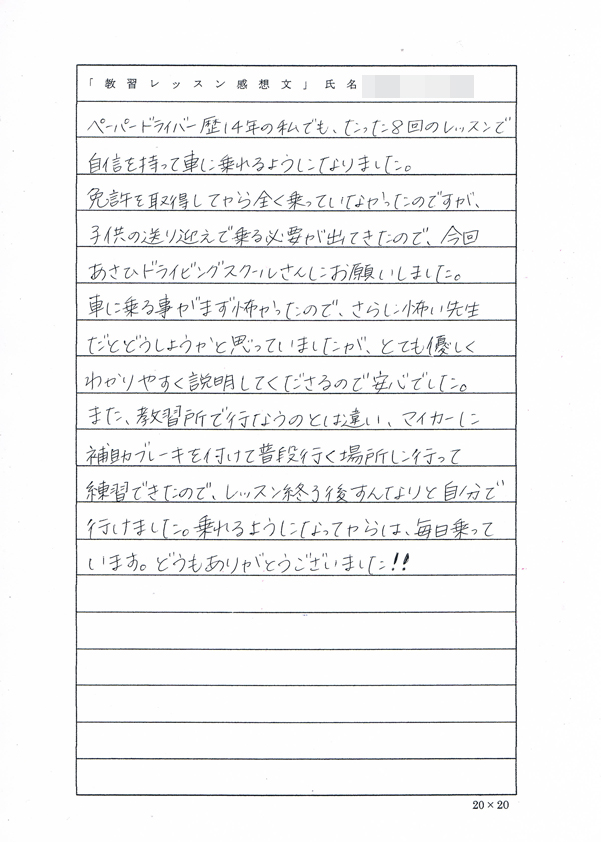 「教習レッスン感想文」氏名
ペーパードライバー歴14年の私でも、たった8回のレッスンで
自信を持って車に乗れるようになりました。
免許を取得してから全く乗っていなかったのですが、
子供の送り迎えで乗る必要が出てきたので、今回
あさひドライビングスクールさんにお願いしました。
車に乗る事がまず怖かったので、さらに怖い先生
だとどうしようかと思っていましたが、とても優しく
わかりやすく説明してくださるので安心でした。
また、教習所で行なうのとは違い、マイカーに
補助ブレーキを付けて普段行く場所に行って
練習できたので、レッスン終了後すんなりと自分で
行けました。乗れるようになってからは、毎日乗って
います。どうもありがとうございました!!
20×20